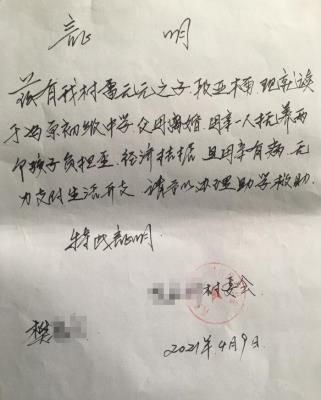 证 明
兹有我村雷云元之子 段亚楠 现就读
于冯原初级中学 父母离婚 母亲一人抚养两
个孩子负担重 经济拮据 且母亲有病 无
力支付生活开支 请予以办理助学救助.
特此证明.
村委会
樊
2021年4月9日